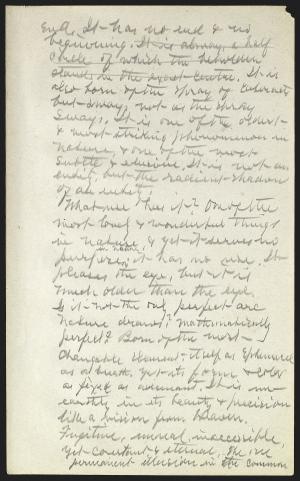 End. It has no end & no
beginning. It is always a half
circle of which the beholder
stands in the exact centre. It is
also born of the spray of cataracts
but sways not as the spray
sways. It is one of the oldest
& most striking phenomenon in
nature, & one of the most
subtle & elusive. It is not an
entity, but the radiant shadow
of an entity.
What use has it? One of the
most lovely & wonderful things
in nature, & yet it serves no
purpose, in nature, it has no use. It
pleases the eye, but it is
much older than the eye.
Is it not the only perfect arc
nature draws? mathematically
perfect? Born of the most
changeable element, itself as ephemeral
as a breath, yet its form & color
as fixed as adamant. It is un-
earthly in its beauty & precision
like a vision from heaven.
Fugitive, unreal, inaccessible,
yet constant & eternal, the one
permanent illusion in the common